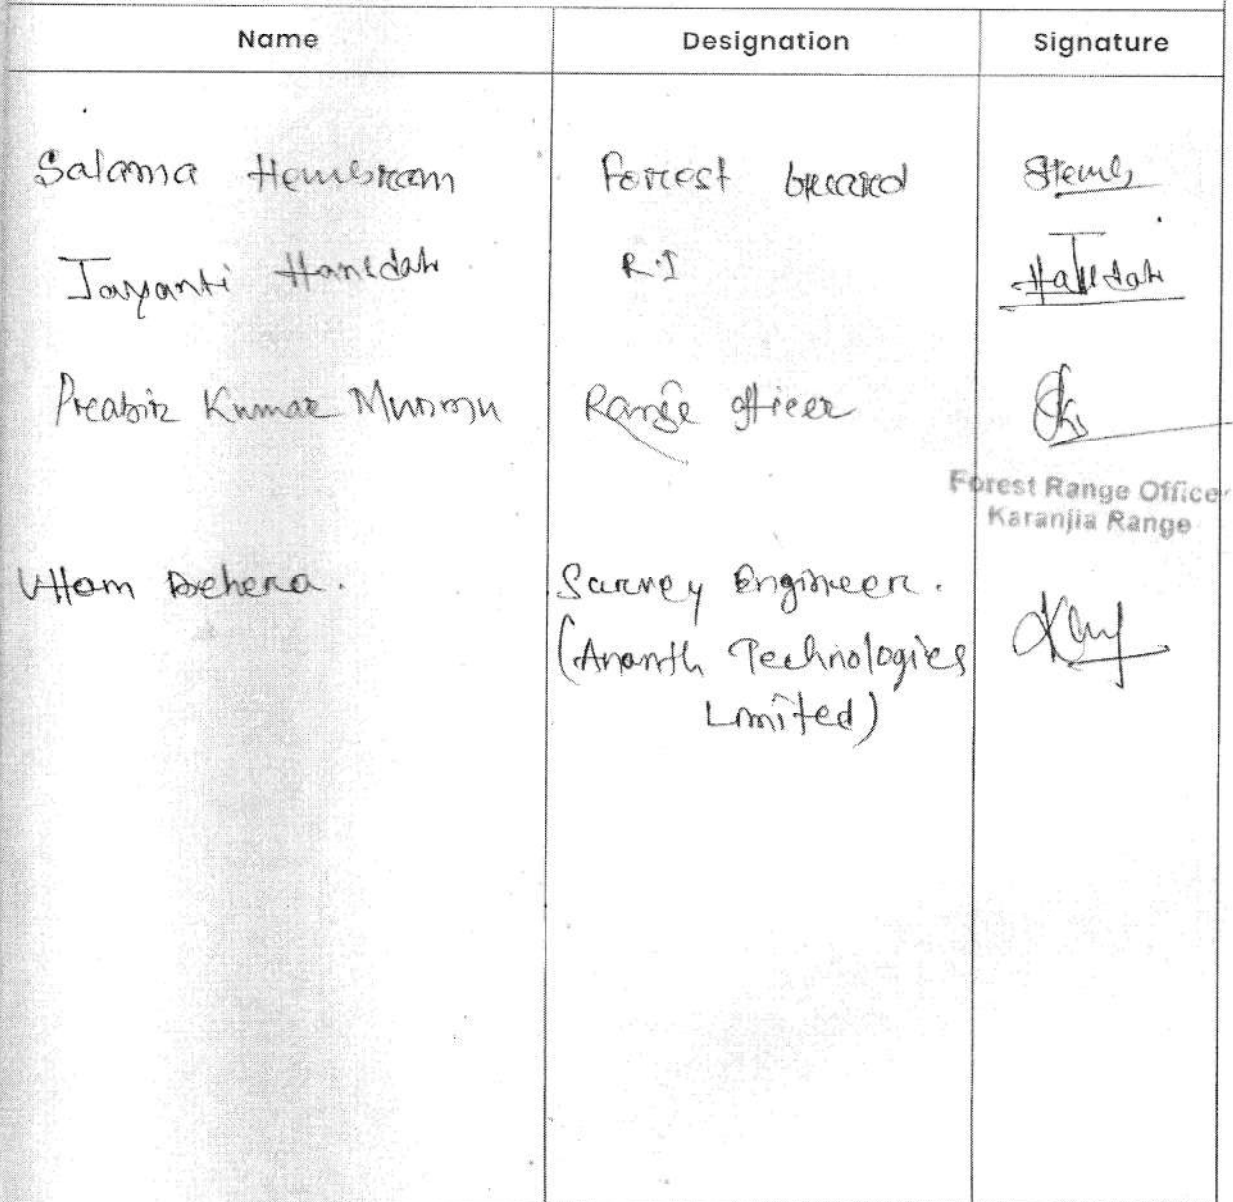 Name Designation Signature
Salama Hembram Forest Guard
Jayanti Hansdah R.I
Prabir Kumar Murmu Range Officer
Forest Range Officer
Karanjia Range
Uttam Behera. Survey Engineer.
(Ananth Technologies
Limited)